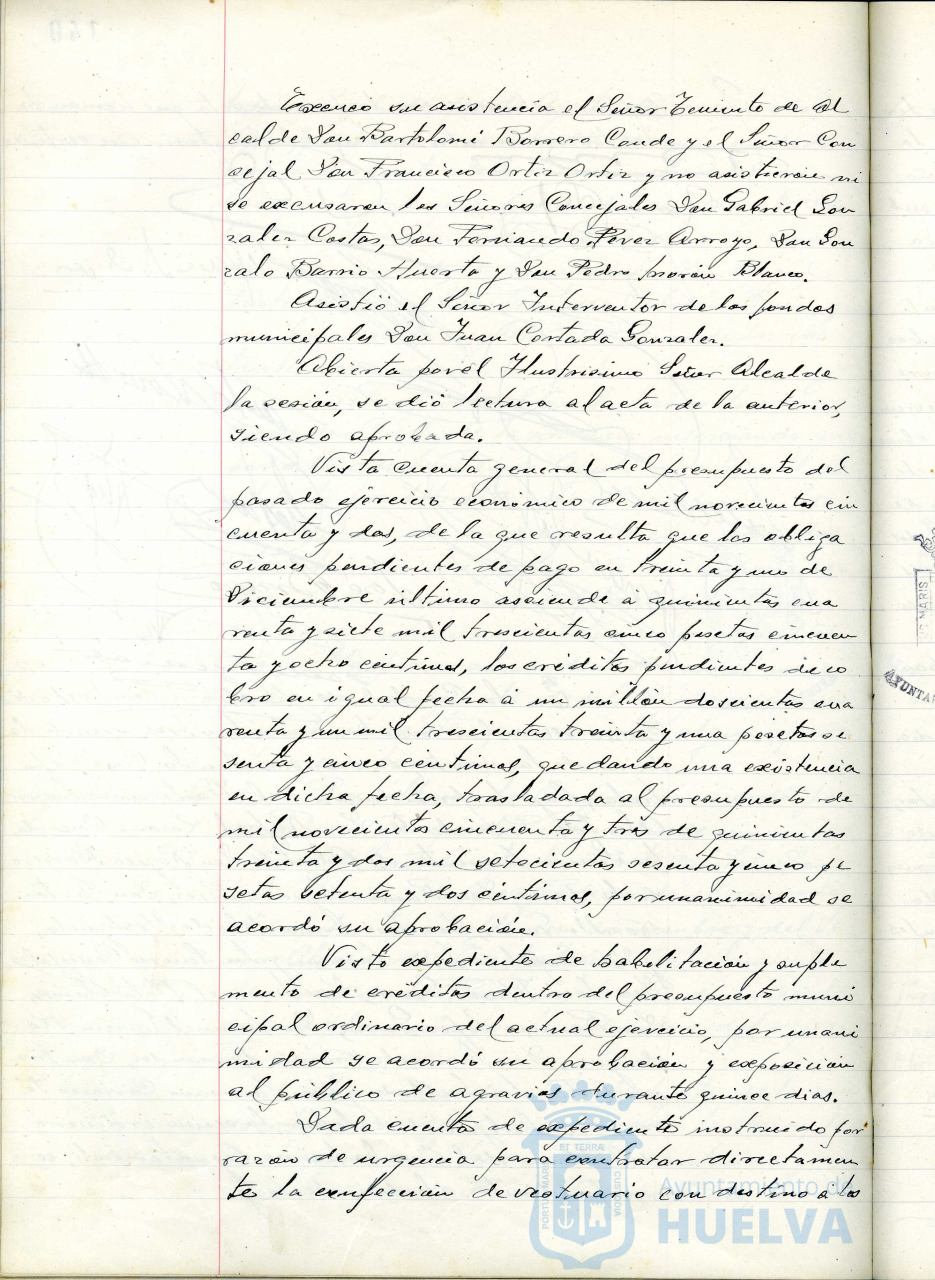 Excusó su asistencia el Señor Teniente de Al
calde Don Bartolomé Borrero Conde y el Señor Con
sejal Don Francisco Ortiz Ortiz y no asistieron ni
se excusaron los Señores Concejales Don Gabriel Gon
zalez Costas, Don Fernando Pérez Arroyo, Don Gon
zalo Barrio Huerta y Don Pedro Morón Blanco.
Asistió el Señor Interventor de los fondos
municipales Don Juan Cortada Gonzalez.
Abierta por el Ilustrisimo Señor Alcalde
la sesión, se dió lectura al acta de la anterior,
siendo aprobada.
Vista cuenta general del presupuesto del
pasado ejercicio económico de mil novecientos cin
cuenta y dos, de la que resulta que las obliga
ciones pendientes de pago en treinta y uno de
Diciembre último asciende á quinientas cua
renta y siete mil trescientas cinco pesetas cincuen
ta y ocho céntimos, los créditos pendientes de co
bro en igual fecha á un millón doscientas cua
renta y un mil trescientas treinta y una pesetas se
senta y cinco centimos, quedando una existencia
en dicha fecha, trasladada al presupuesto de
mil novecientos cincuenta y tres de quinientas
treinta y dos mil setecientas sesenta y cinco pe
setas setenta y dos céntimos, por unanimidad se
acordó su aprobación.
Visto expediente de habilitación y suple
mento de créditos dentro del presupuesto muni
cipal ordinario del actual ejercicio, por unani
midad se acordó su aprobación y exposición
al público de agravios durante quince dias.
Dada cuenta de expediente instruido por
razón de urgencia para contratar directamen
te la confección de vestuario con destino a los
Ayuntamiento de
HUELVA